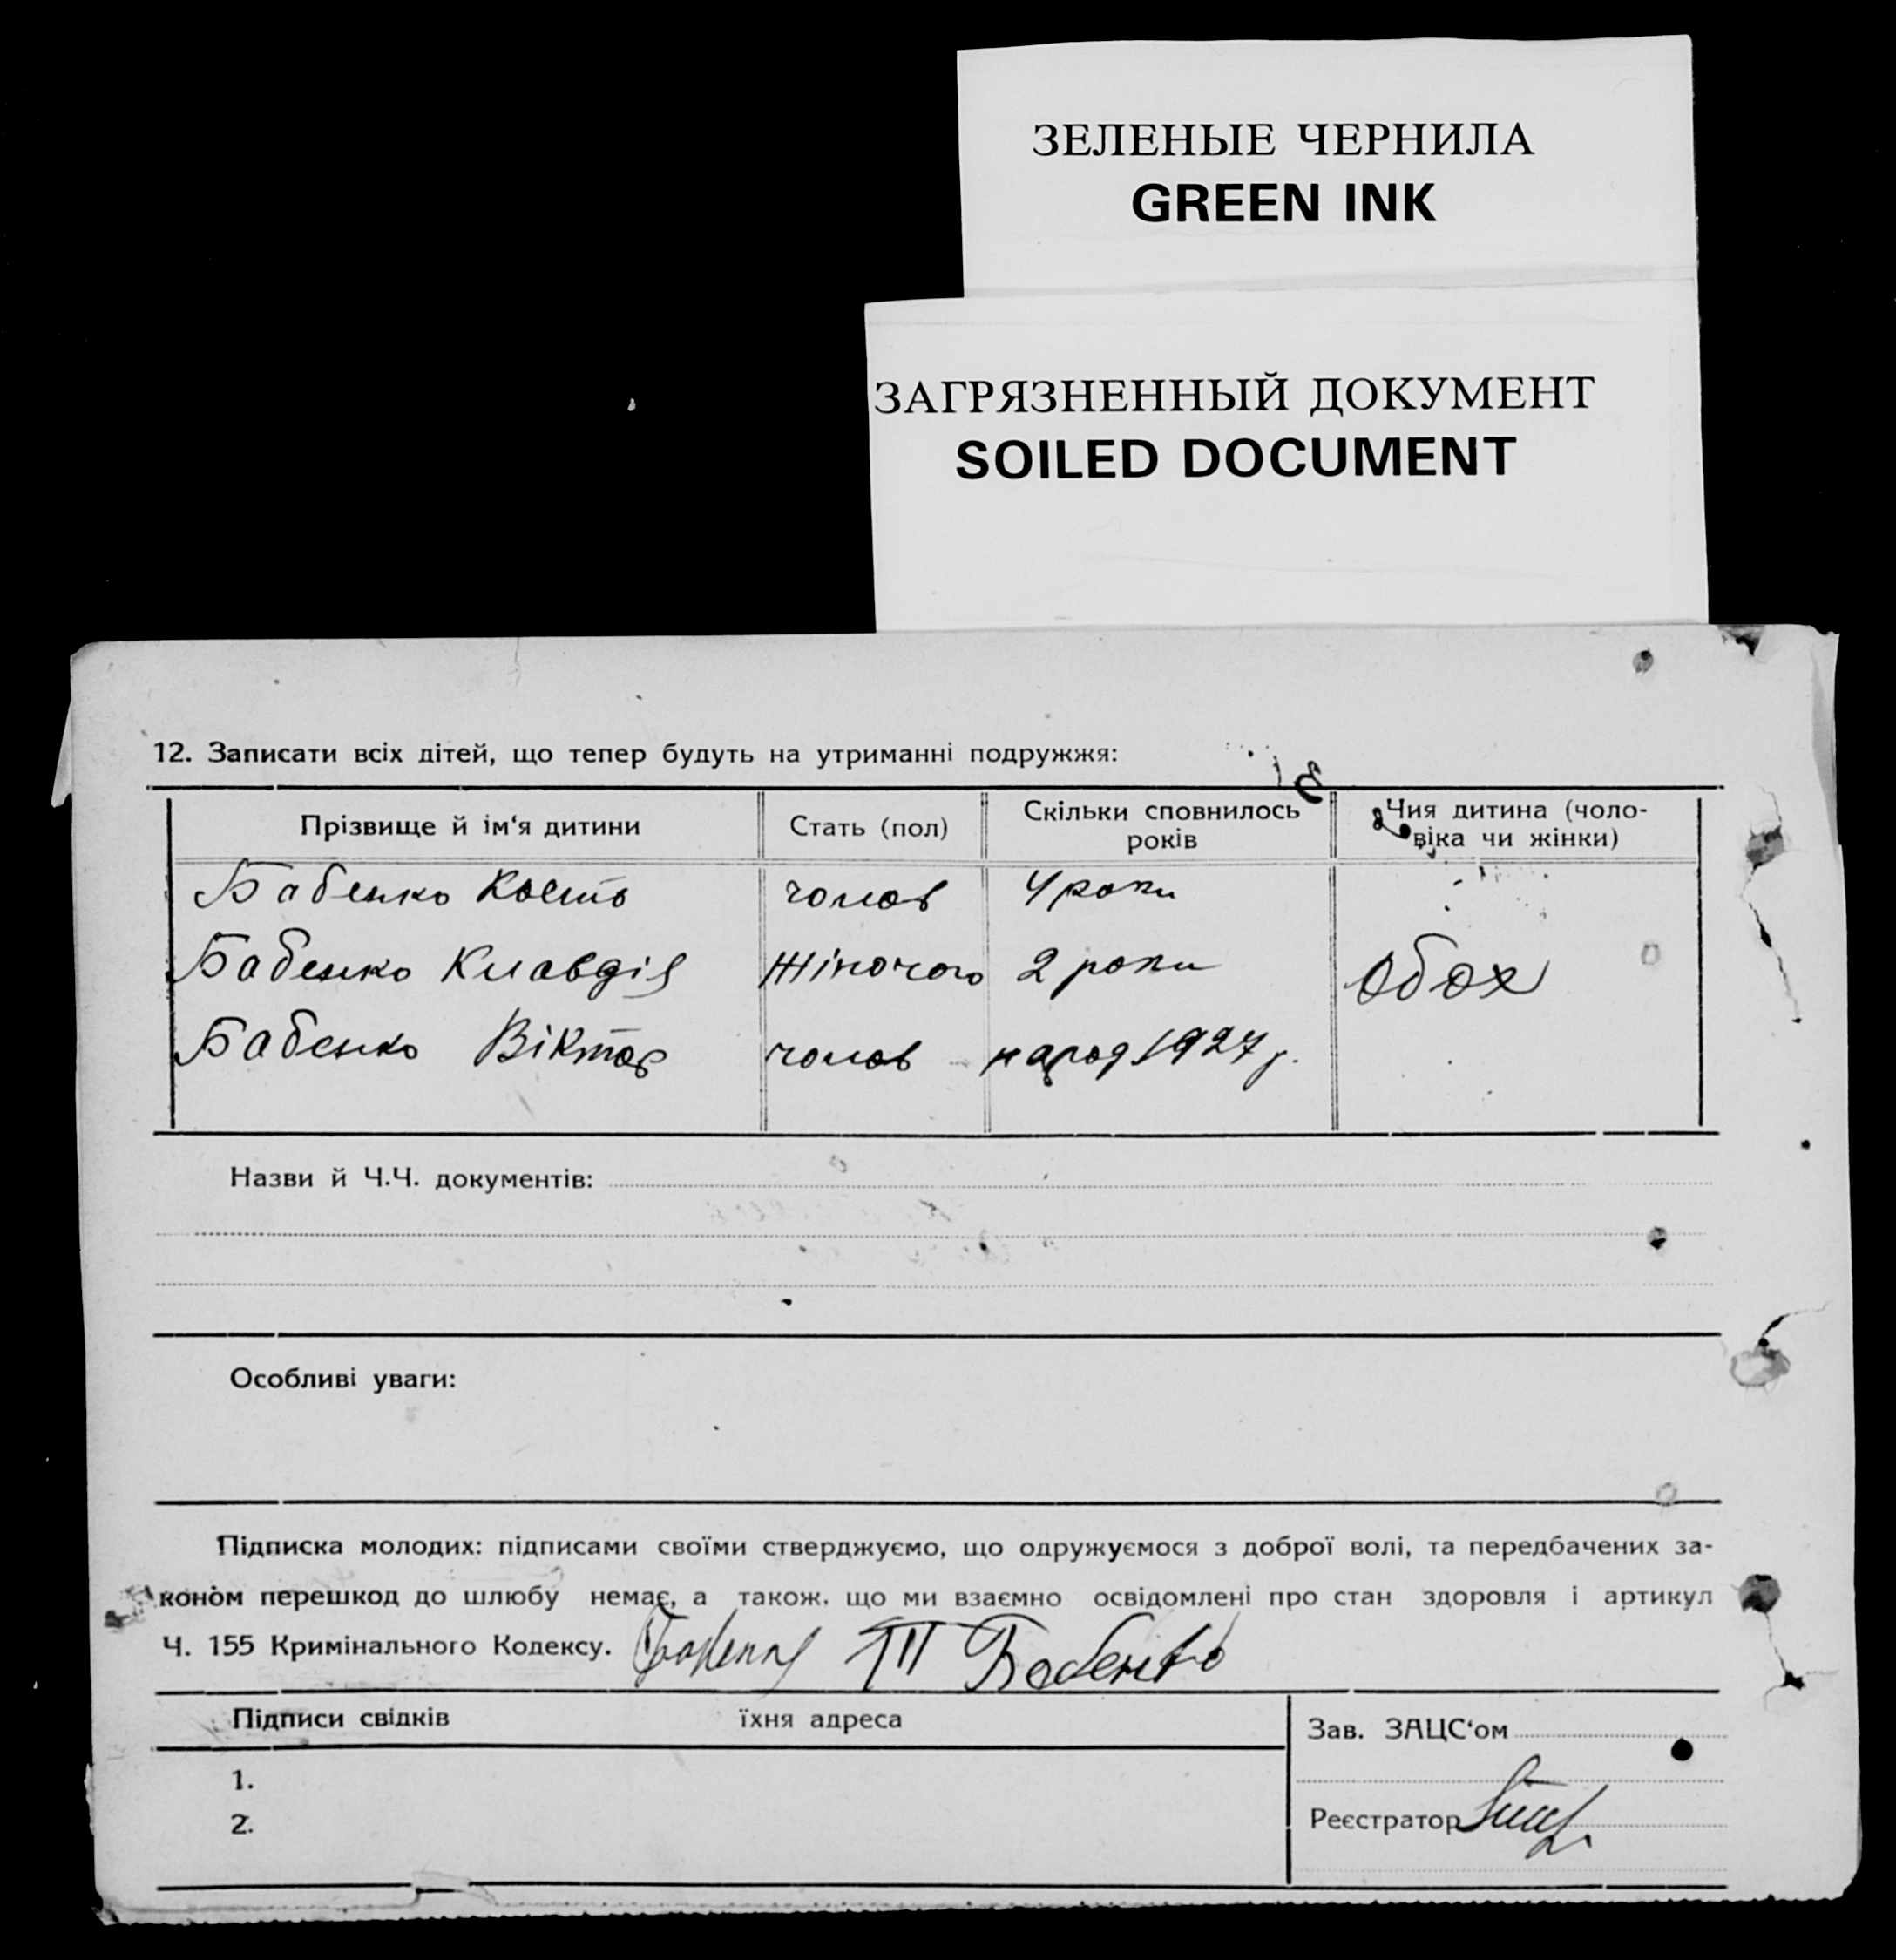 ЗЕЛЕНЫЕ ЧЕРНИЛА
GREEN INK
ЗАГРЯЗНЕННЫЙ ДОКУМЕНТ
SOILED DOCUMENT
12. Записати всіх дітей, що тепер будуть на утриманні подружжя:
Прізвище й ім'я дитини Стать (пол) Скільки сповнилось років Чия дитина (чоловіка чи жінки)
Бабенко Кость чолов 4 роки
Бабенко Клавдія Жіночого 2 роки Обох
Бабенко Віктор чолов народ 1927 р.
Назви й Ч.Ч. документів:
Особливі уваги:
Підписка молодих: підписами своїми стверджуємо, що одружуємося з доброї волі, та передбачених за-
коном перешкод до шлюбу немає, а також, що ми взаємно освідомлені про стан здоровля і артикул
Ч. 155 Кримінального Кодексу. Бабенко
Підписи свідків їхня адреса Зав. ЗАЦС'ом
1.
2.
Реєстратор